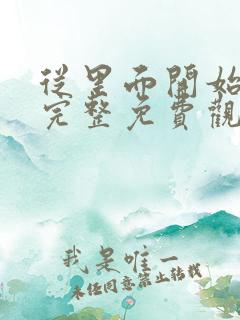 從里而開始
完整免費觀
我是唯一
未經同意禁止轉載